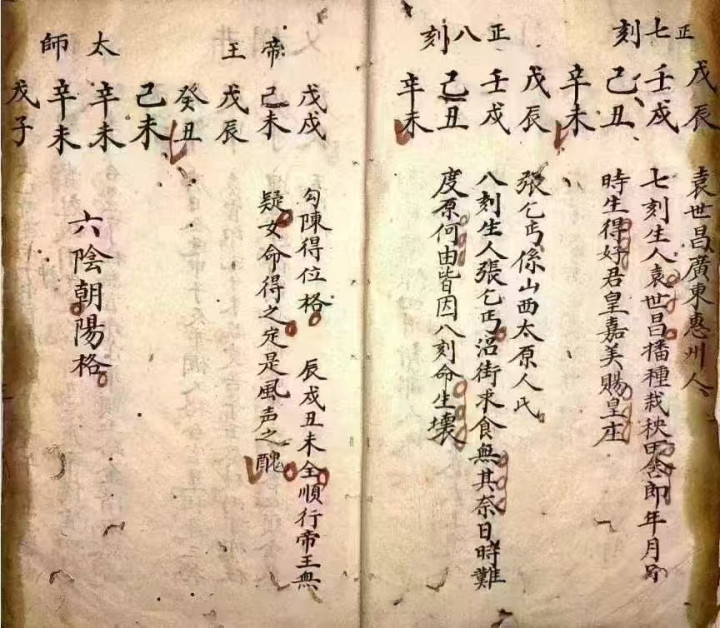 正七刻
戊辰
壬戌
己丑
辛未
袁世昌廣東惠州人
七刻生人袁世昌播種栽秧田即年月
時生得好君皇嘉美賜皇庄
正八刻
戊辰
壬戌
己丑
辛未
張乞丐係山西太原人氏
八刻生人張乞丐沿街求食無其奈日時難
度原何由皆因八刻命生壞
帝王
戊戌
己未
戊辰
癸丑
勾陳得位格 辰戌丑未全順行帝王無
疑女命得之定是風声之醜
太師
己未
辛未
辛未
戊子
六陰朝陽格